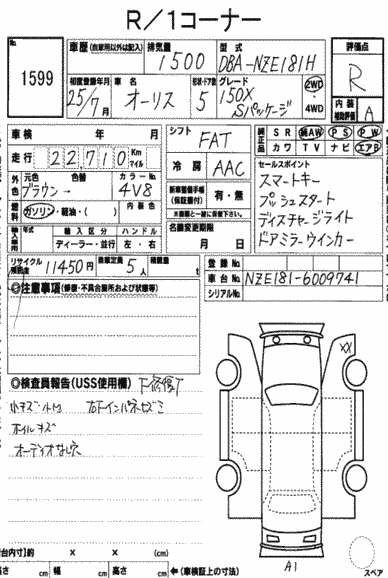 R/1コーナー
No.
1599
車歴 (自家用以外は記入)
排気量
1500
型式
DBA-NZE181H
評価点
R
初度登録年月
25/7月
車名
オーリス
形状・ドア数
5
グレード
150X
Sパッケージ
2WD
4WD
内装
補助評価
A
車検 年 月
シフト
FAT
純正品
SR 純AW PS PW
カワ TV ナビ エアB
走行 22,710 Km マイル
冷房
AAC
セールスポイント
スマートキー
プッシュスタート
ディスチャージライト
ドアミラーウインカー
外色
元色
ブラウン→
色替
カラーNo.
4V8
新車整備手帳
(保証書付)
有・無
※書類と一緒に保管下さい。
燃料
ガソリン・軽油・( )
内装色
名義変更期限
月 日
輸入車用
年式
輸入区分
ディーラー・並行
ハンドル
左・右
リサイクル
預託金
11450円
乗車定員
5人
積載量
t
登録No.
車台No.
NZE181-6009741
シリアルNo.
◎注意事項 (修復・不具合箇所および状態等)
◎検査員報告(USS使用欄)
小キズ小凹
ホイルキズ
オーディオなし穴
XX
A1
台内寸]約 x x (cm)
長さ cm 幅 cm 高さ cm ←(車検証上の寸法)
スペア